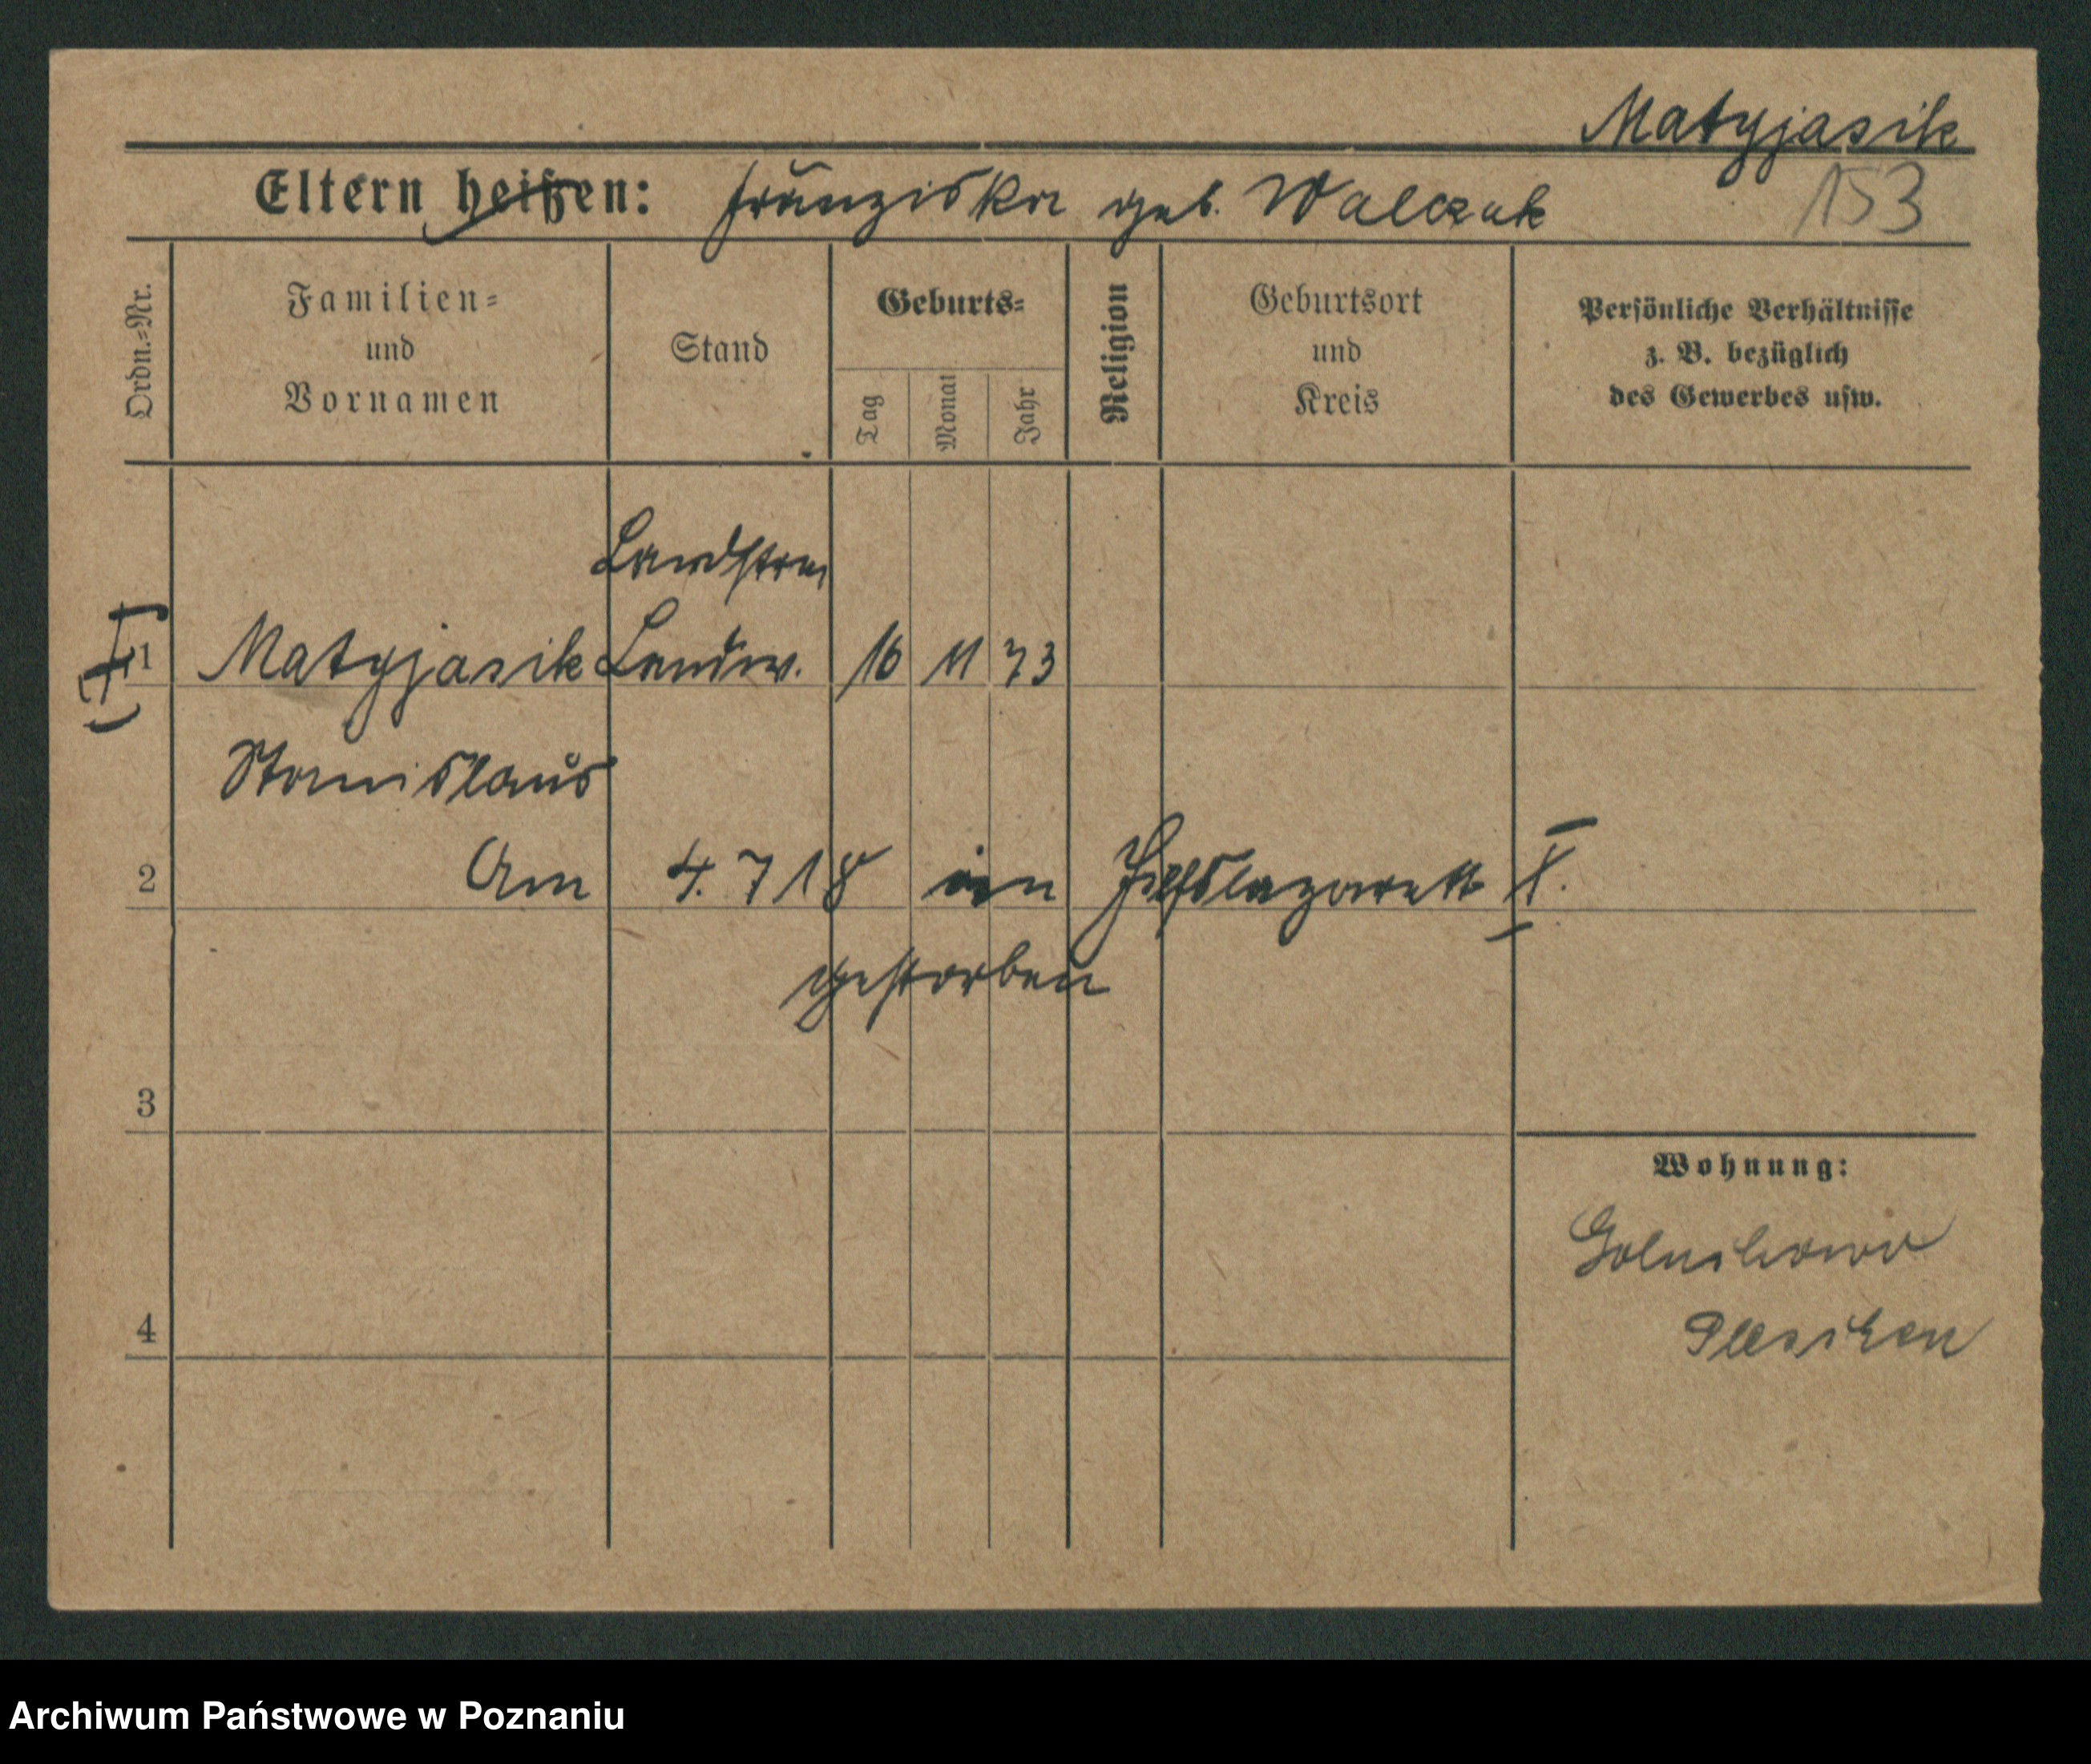 Matyjasik
Eltern heißen: Franziska geb. Walczak
153
Ordn.=Nr.
Familien=
und
Vornamen
Stand
Geburts=
Tag
Monat
Jahr
Religion
Geburtsort
und
Kreis
Persönliche Verhältnisse
z. B. bezüglich
des Gewerbes usw.
Landstrm
1 Matyjasik Landw. 16 11 73
Stanislaus
2 Am 4. 7 18 im Hilfslazarett X.
gestorben
3
Wohnung:
4
Archiwum Państwowe w Poznaniu